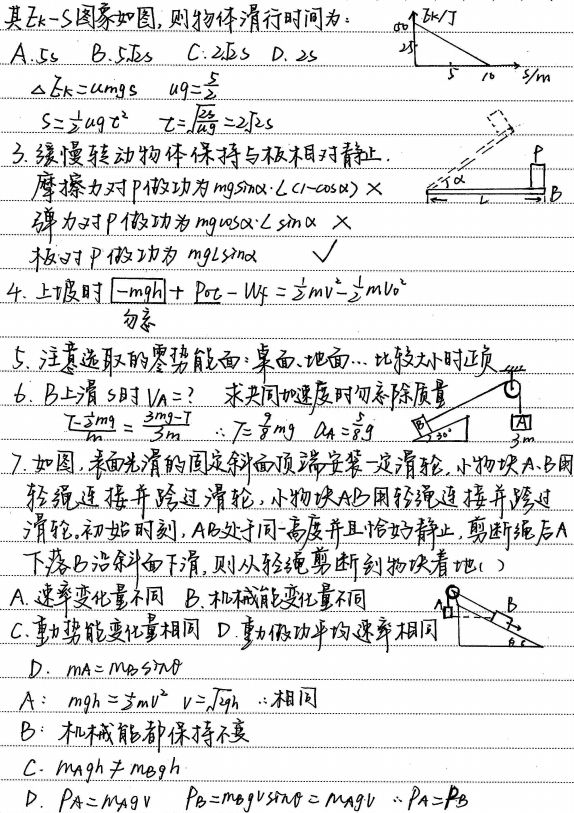 其Ek-S图象如图,则物体滑行时间为:
A.5s B.5√2s C.2√2s D.2s
Ek/J
50
25
5 10 s/m
△Ek=umgs ug=5/2
S=1/2ugt² t=√(2s/ug)=2√2s
3.缓慢转动物体保持与板相对静止.
摩擦力对P做功为mgsinα·L(1-cosα) ×
弹力对P做功为mgcosα·Lsinα ×
板对P做功为mgLsinα √
P
α
L
B
4.上坡时 -mgh + Pot - Wf = 1/2mv²-1/2mv₀²
勿忘
5.注意选取的零势能面:桌面、地面…比较大小时正负
6.B上滑S时VA=? 求共同加速度时勿忘除质量
(T-1/2mg)/m = (3mg-T)/3m ∴T=9/8mg aA=5/8g
B
30°
A
3m
7.如图,表面光滑的固定斜面顶端安装一定滑轮,小物块A.B用
轻绳连接并跨过滑轮,小物块AB用轻绳连接并跨过
滑轮。初始时刻,AB处于同一高度并且恰好静止,剪断绳后A
下落B沿斜面下滑,则从轻绳剪断刻物块着地( )
A.速率变化量不同 B.机械能变化量不同
C.重力势能变化量相同 D.重力做功平均速率相同
A
B
D. mA=mBsinθ
A: mgh=1/2mv² v=√2gh ∴相同
B: 机械能都保持不变
C. mAgh≠mBgh
D. PA=mAgv PB=mBgvsinθ=mAgv ∴PA=PB